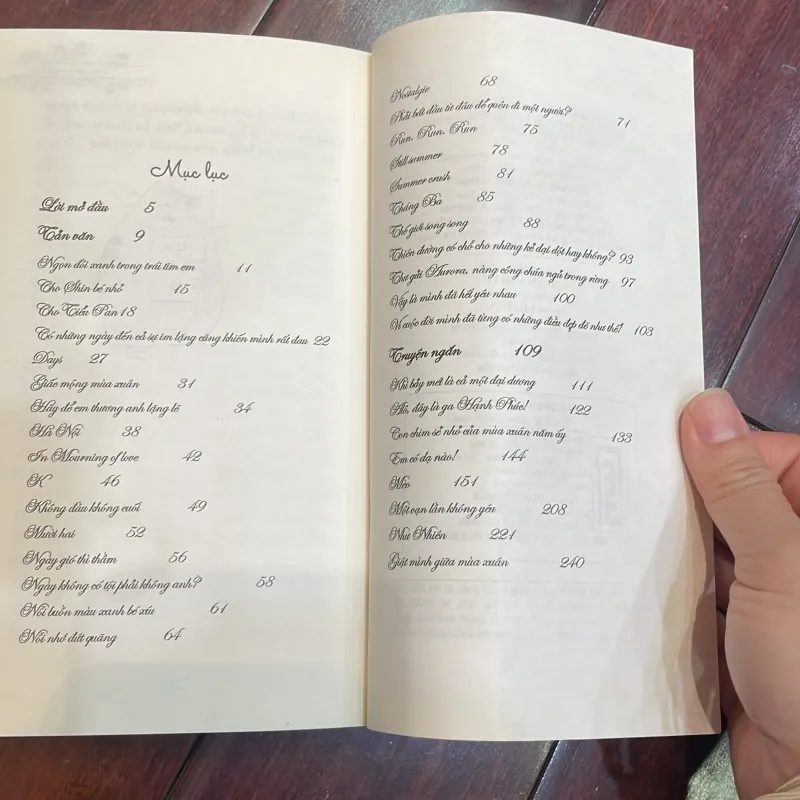 Mục lục
Lời mở đầu 5
Tản văn 9
Ngọn đồi xanh trong trái tim em 11
Cho Shin bé nhỏ 15
Cho Tiểu Pan 18
Có những ngày đến cả sự im lặng cũng khiến mình rất đau 22
Days 27
Giấc mộng mùa xuân 31
Hãy để em thương anh lặng lẽ 34
Hà Nội 38
In Mourning of love 42
K 46
Không đầu không cuối 49
Mười hai 52
Ngày gió thì thầm 56
Ngày không có tội phải không anh? 58
Nỗi buồn màu xanh bé xíu 61
Nỗi nhớ đứt quãng 64
Nostalgie 68
Phải bắt đầu từ đâu để quên đi một người? 71
Run, Run, Run 75
Still summer 78
Summer crush 81
Tháng Ba 85
Thế giới song song 88
Thiên đường có chỗ cho những kẻ dại dột hay không? 93
Thư gửi Aurora, nàng công chúa ngủ trong rừng 97
Vậy là mình đã hết yêu nhau 100
Vì cuộc đời mình đã từng có những điều đẹp đẽ như thế! 103
Truyện ngắn 109
Khi bảy mét là cả một đại dương 111
Alô, đây là ga Hạnh Phúc! 122
Con chim sẻ nhỏ của mùa xuân năm ấy 133
Em có dạ nào! 144
Mèo 151
Một vạn lần không yêu 208
Như Nhiên 221
Giật mình giữa mùa xuân 240